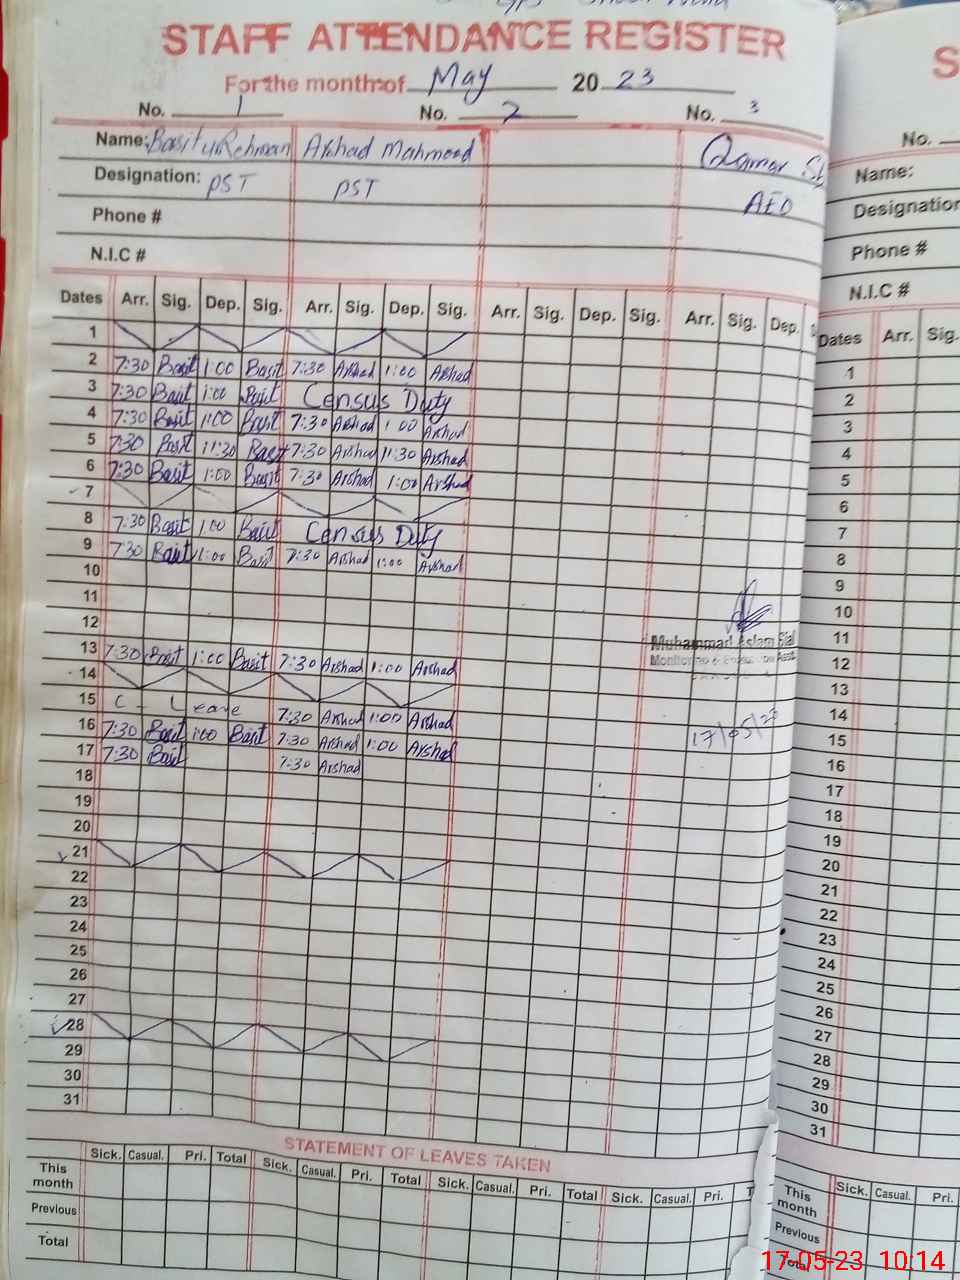 STAFF ATTENDANCE REGISTER
For the month of May 20 23
No. 1 No. 2 No. 3
Name: Basit ur Rehman Arshad Mahmood Qamar
Designation: PST PST AEO
Phone #
N.I.C #
Dates Arr. Sig. Dep. Sig. Arr. Sig. Dep. Sig. Arr. Sig. Dep. Sig. Arr. Sig. Dep.
1
2 7:30 Basit 1:00 Basit 7:30 Arshad 1:00 Arshad
3 7:30 Basit 1:00 Basit Census Duty
4 7:30 Basit 1:00 Basit 7:30 Arshad 1:00 Arshad
5 7:30 Basit 11:30 Basit 7:30 Arshad 11:30 Arshad
6 7:30 Basit 1:00 Basit 7:30 Arshad 1:00 Arshad
7
8 7:30 Basit 1:00 Basit Census Duty
9 7:30 Basit 1:00 Basit 7:30 Arshad 1:00 Arshad
10
11
12
13 7:30 Basit 1:00 Basit 7:30 Arshad 1:00 Arshad
14
15 C - Leave 7:30 Arshad 1:00 Arshad
16 7:30 Basit 1:00 Basit 7:30 Arshad 1:00 Arshad
17 7:30 Basit 7:30 Arshad
18
19
20
21
22
23
24
25
26
27
28
29
30
31
Muhammad Aslam Sial
17/05/23
STATEMENT OF LEAVES TAKEN
Sick. Casual. Pri. Total Sick. Casual. Pri. Total Sick. Casual. Pri. Total Sick. Casual. Pri.
This month
Previous
Total
S
No.
Name:
Designation
Phone #
N.I.C #
Dates Arr. Sig.
1
2
3
4
5
6
7
8
9
10
11
12
13
14
15
16
17
18
19
20
21
22
23
24
25
26
27
28
29
30
31
Sick. Casual. Pri.
This month
Previous
Total
17-05-23 10:14